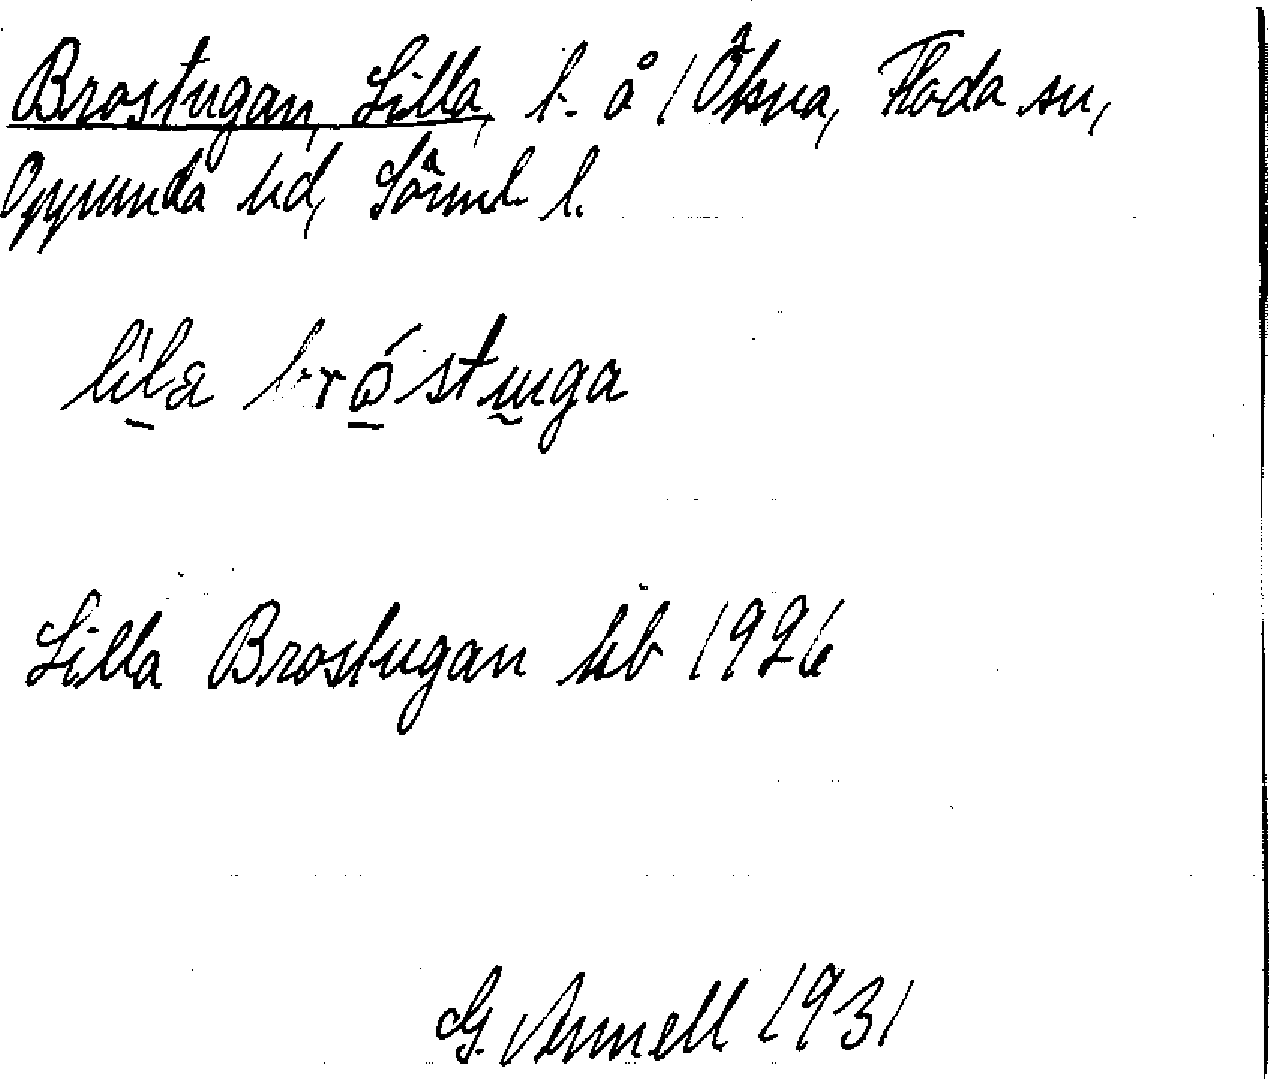 Brostugan, Lilla, l. å 1 Ökna, Floda sn,
Oppunda hd, Sörml l.
lila bro̱stuga
Lilla Brostugan kb 1926
G. Annell 1931